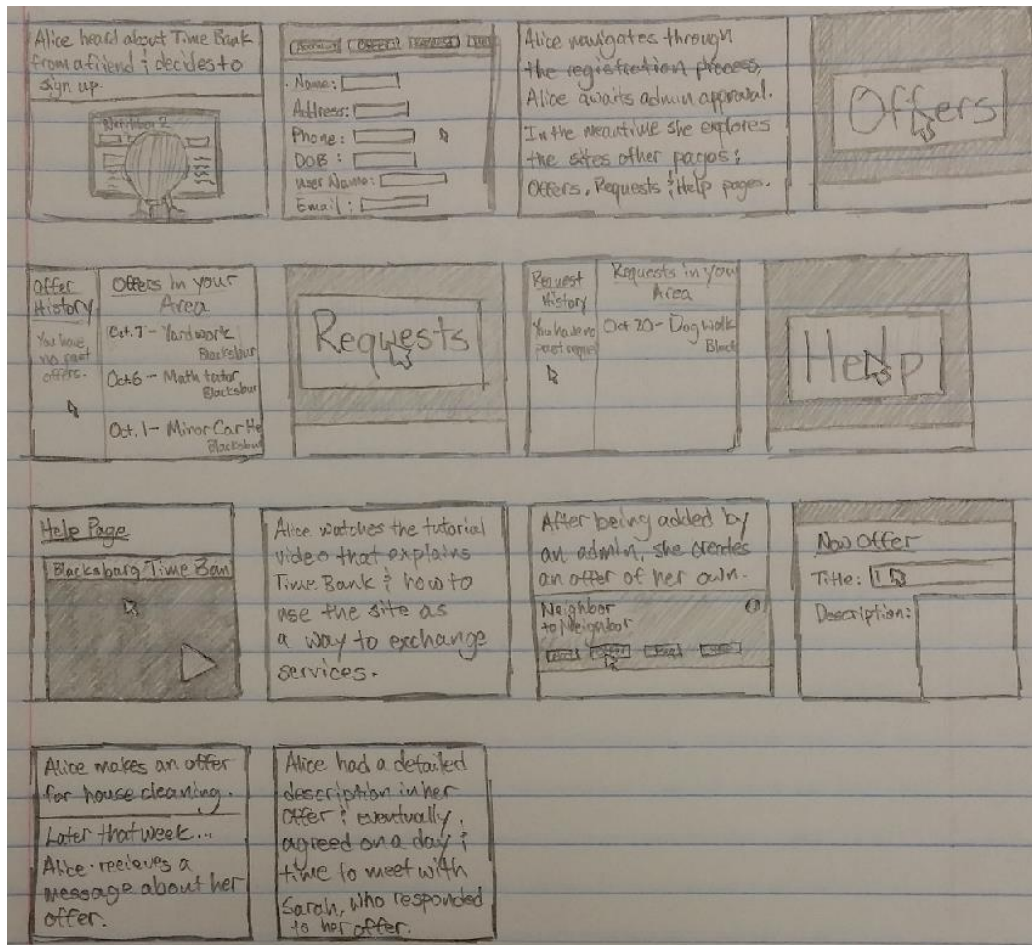 Alice heard about Time Bank
from a friend & decides to
sign up.
Neighbor 2
Account
Offers
Request
Name:
Address:
Phone:
DOB:
User Name:
Email:
Alice navigates through
the registration process,
Alice awaits admin approval.
In the meantime she explores
the sites other pages:
Offers, Requests & Help pages.
Offers
Offer
History
You have
no past
offers.
Offers in your
Area
Oct. 7 - Yardwork
Blacksbur
Oct 6 - Math tutor
Blacksbur
Oct. 1 - Minor Car He
Blacksbur
Requests
Request
History
You have no
past reque
Requests in your
Area
Oct 20 - Dog walk
Black
Help
Help Page
Blacksburg Time Ban
Alice watches the tutorial
video that explains
Time Bank & how to
use the site as
a way to exchange
services.
After being added by
an admin, she creates
an offer of her own.
Neighbor
to Neighbor
New Offer
Title:
Description:
Alice makes an offer
for house cleaning.
Later that week...
Alice recieves a
message about her
offer.
Alice had a detailed
description in her
offer & eventually,
agreed on a day &
time to meet with
Sarah, who responded
to her offer.